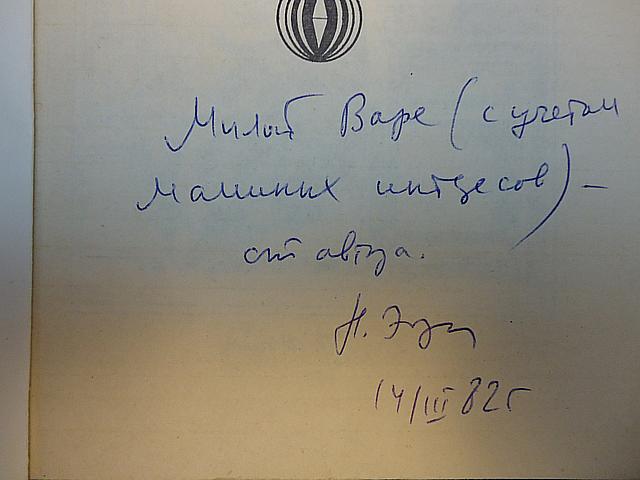 Милой Варе (с учетом
маминых интересов) –
от автора.
Н.
14/III 82 г